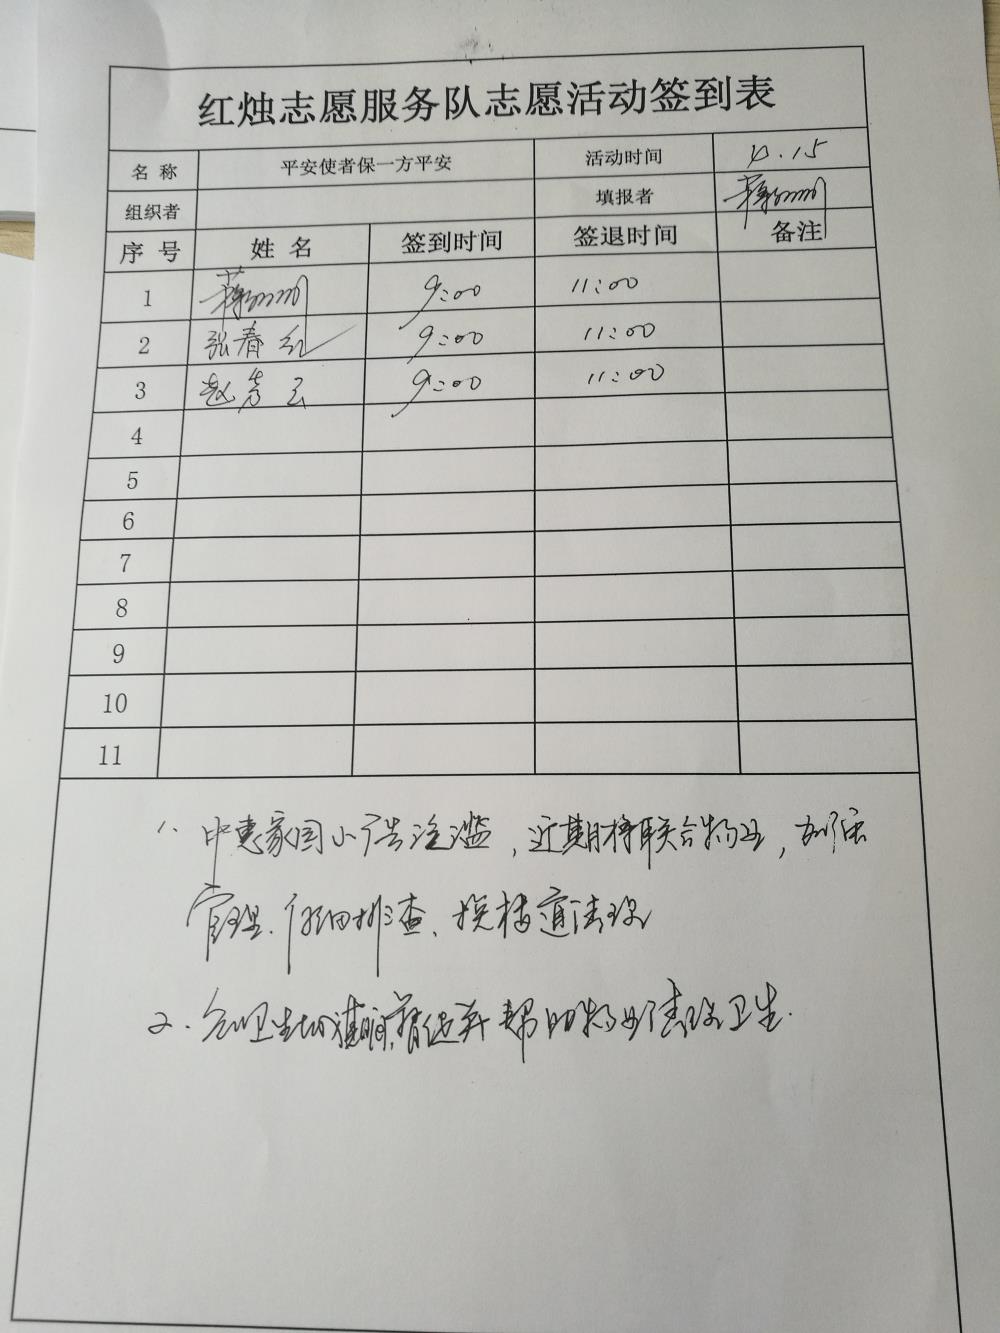 红烛志愿服务队志愿活动签到表
名 称 平安使者保一方平安 活动时间 10.15
组织者 填报者
序 号 姓 名 签到时间 签退时间 备注
1 9:00 11:00
2 张春红 9:00 11:00
3 赵 云 9:00 11:00
4
5
6
7
8
9
10
11
1、中惠家园小广告泛滥，近期将联合物业，加强
管理、仔细排查、挨楼道清理
2、卫生 帮助物业清理卫生.